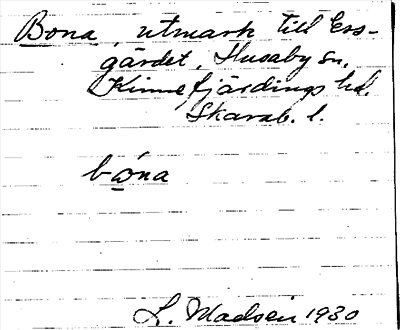 Bona, utmark till Ess-
gärdet, Husaby sn,
Kinnefjärdings hd.
Skarab. l.
bona
L. Madsén 1930